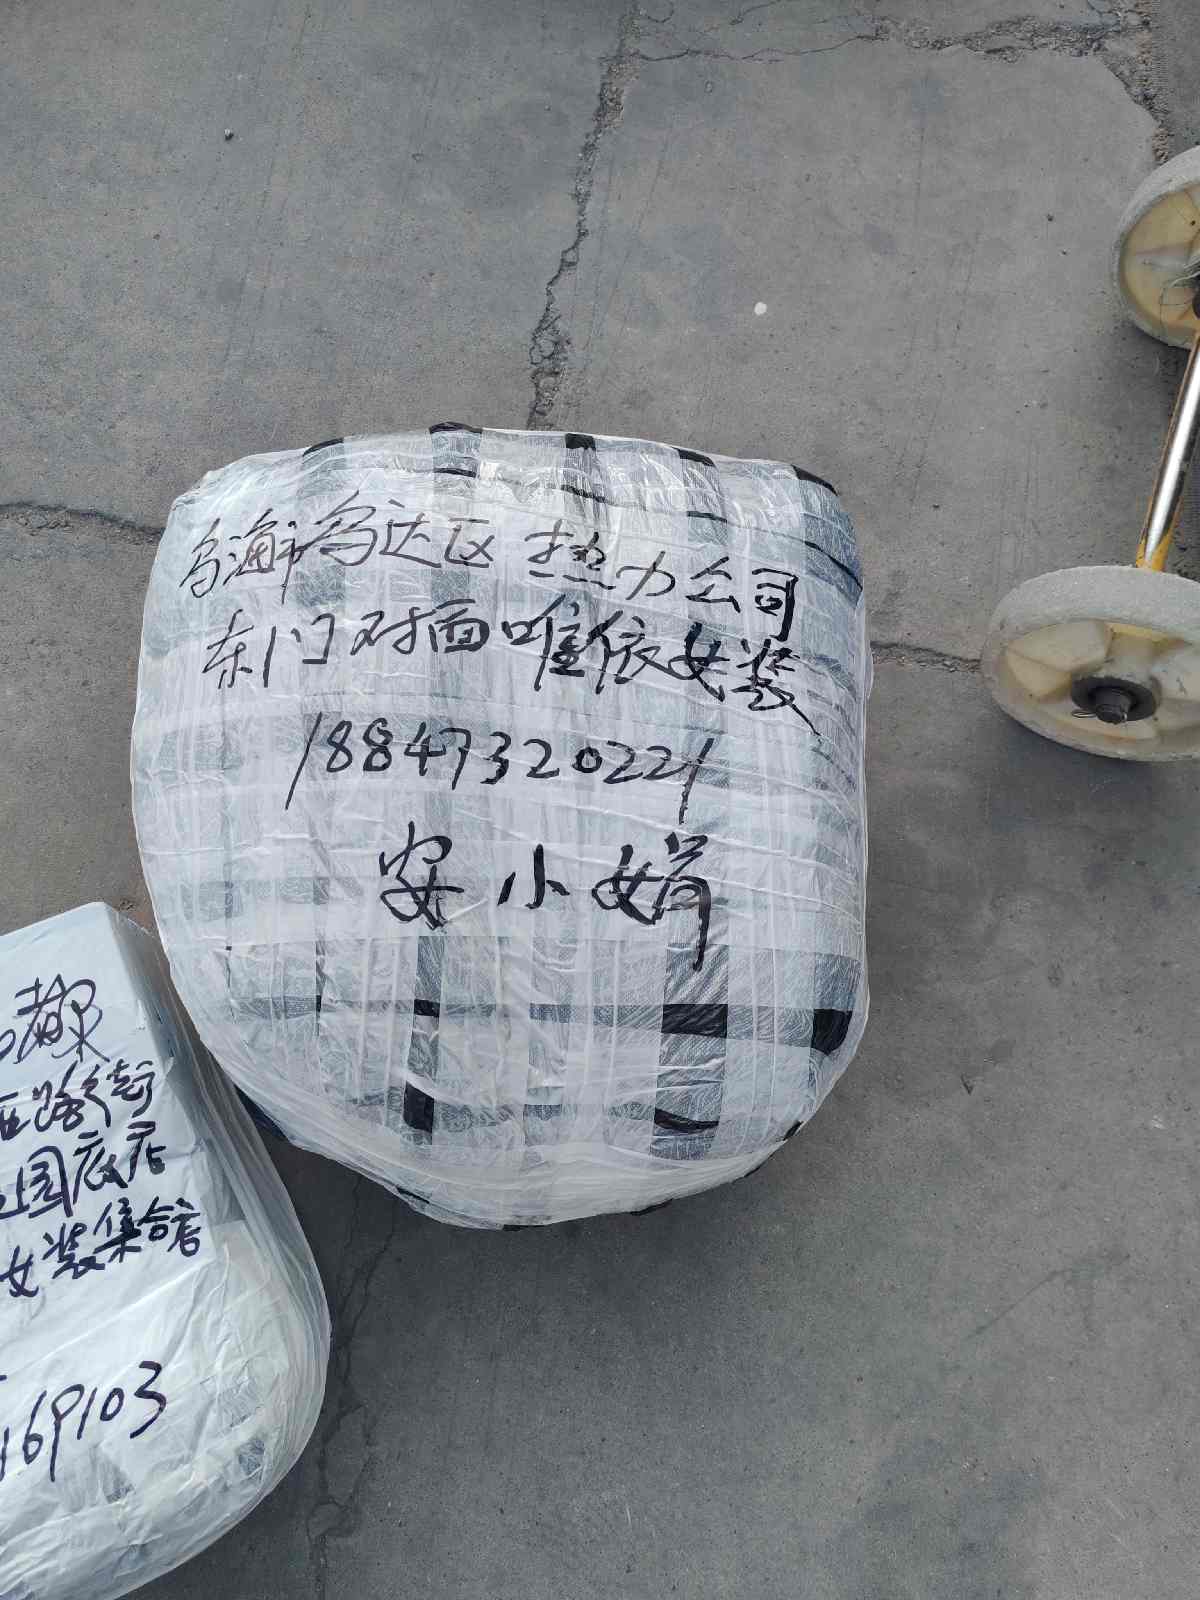 乌海市乌达区 热力公司
东门对面唯依女装
18847320221
安小娟
都
路
园底店
女装集合店
169103